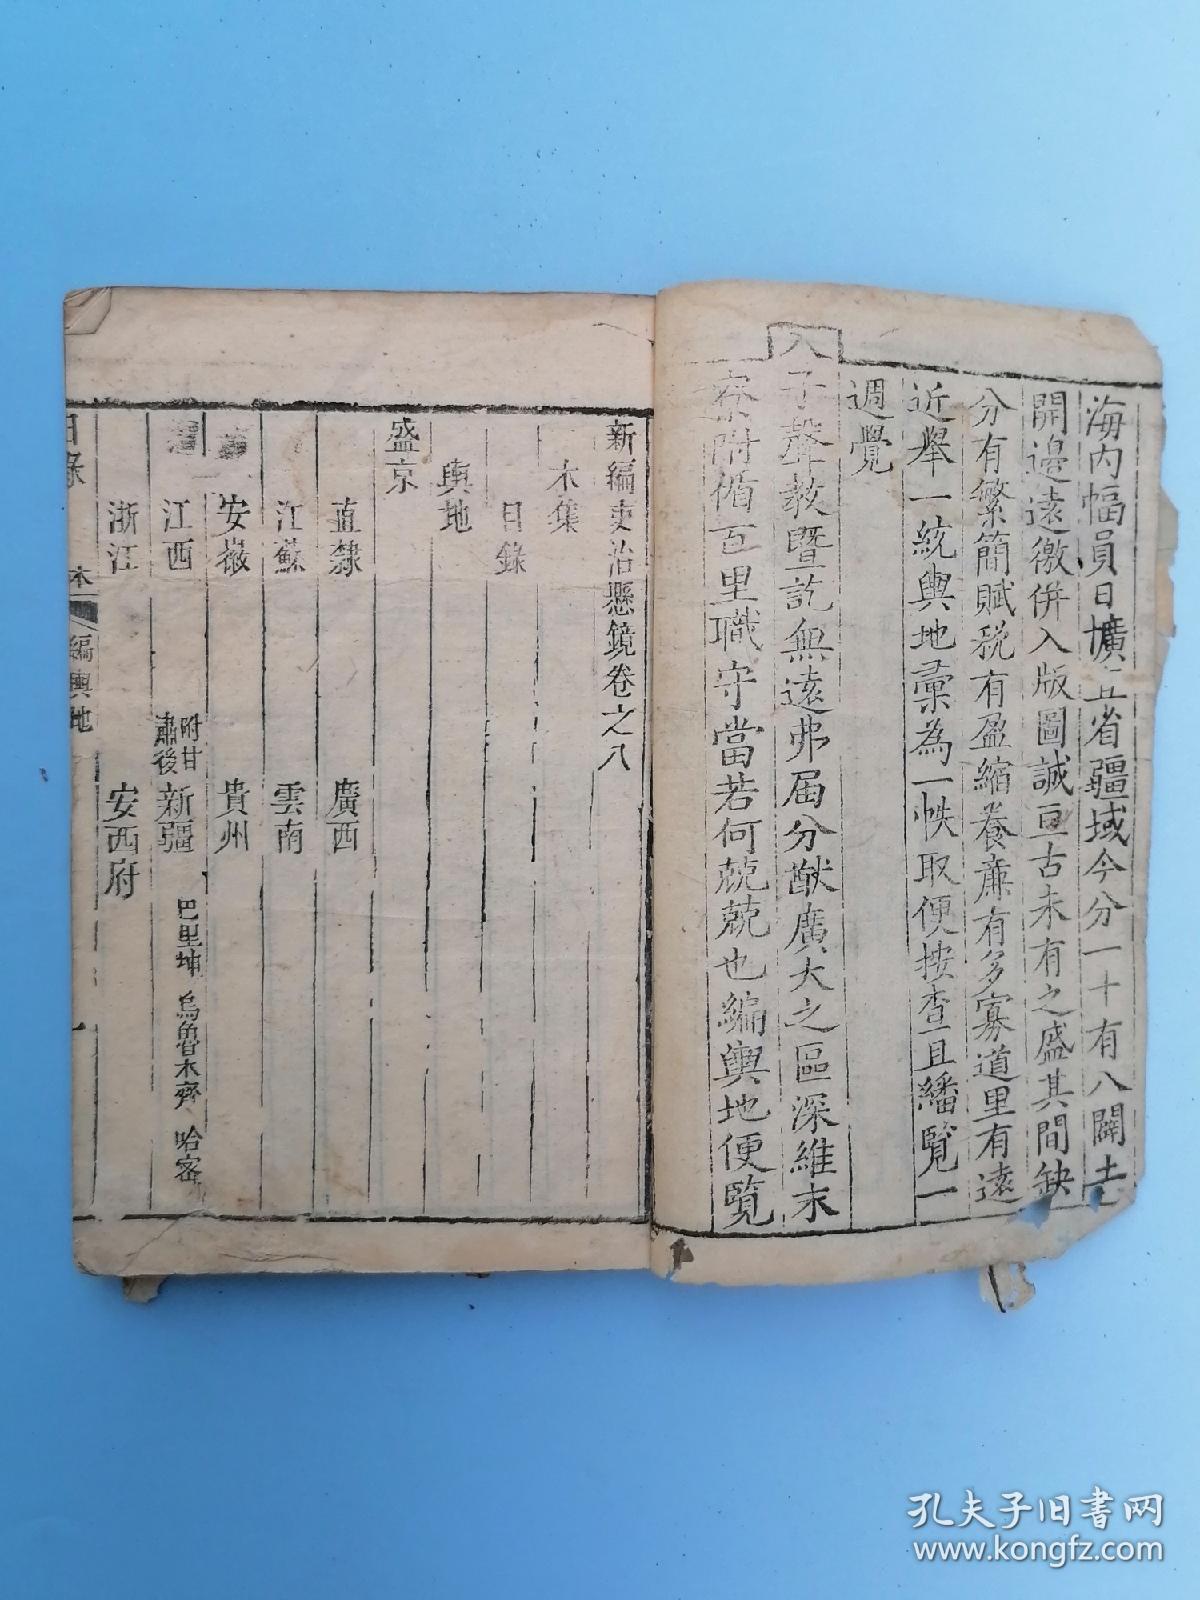 海內幅員日擴直省疆域今分一十有八闢土
開邊遠徼併入版圖誠亘古未有之盛其間缺
分有繁簡賦稅有盈縮養廉有多寡道里有遠
近舉一統輿地彙為一帙取便按查且繙覽一
週覺
子聲教暨訖無遠弗届分猷廣大之區深維末
寮附循百里職守當若何兢兢也編輿地便覽
新編吏治懸鏡卷之八
木集
目錄
輿地
盛京
直隸 廣西
江蘇 雲南
安徽 貴州
江西 附甘肅後 新疆 巴里坤 烏魯木齊 哈密
浙江 安西府
目錄 木 編輿地 一
孔夫子旧书网
www.kongfz.com